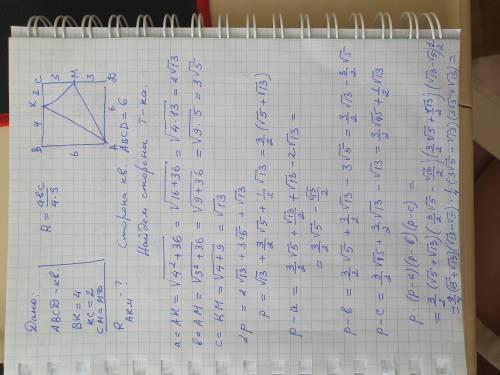 Дано:
ABCD - кв.
BK = 4
KC = 2
CM = MD
R AKM - ?
R = abc / 4·S
B 4 K 2 C
3
M
3
6
6
A
D
Сторона кв. ABCD = 6
Найдем стороны т-ка.
a = AK = √4² + 36 = √16 + 36 = √4·13 = 2√13
b = AM = √3² + 36 = √9 + 36 = √9·5 = 3√5
c = KM = √4 + 9 = √13
2p = 2√13 + 3√5 + √13
p = √13 + 3/2 √5 + 1/2 √13 = 3/2 (√5 + √13)
p - a = 3/2 √5 + √13/2 + √13 - 2√13 =
= 3/2 √5 - √13/2
p - b = 3/2 √5 + 3/2 √13 - 3√5 = 3/2 √13 - 3/2 √5
p - c = 3/2 √5 + 3/2 √13 - √13 = 3/2 √5 + 1/2 √13
p (p-a)(p-b)(p-c) =
= 3/2 (√5 + √13)(3/2 √5 - √13/2)(3/2 √5 + √13/2)(√13 - √5) 3/2
= 9/4 (√5 + √13)(√13 - √5) · 1/4 (3√5 - √13)(3√5 + √13) =